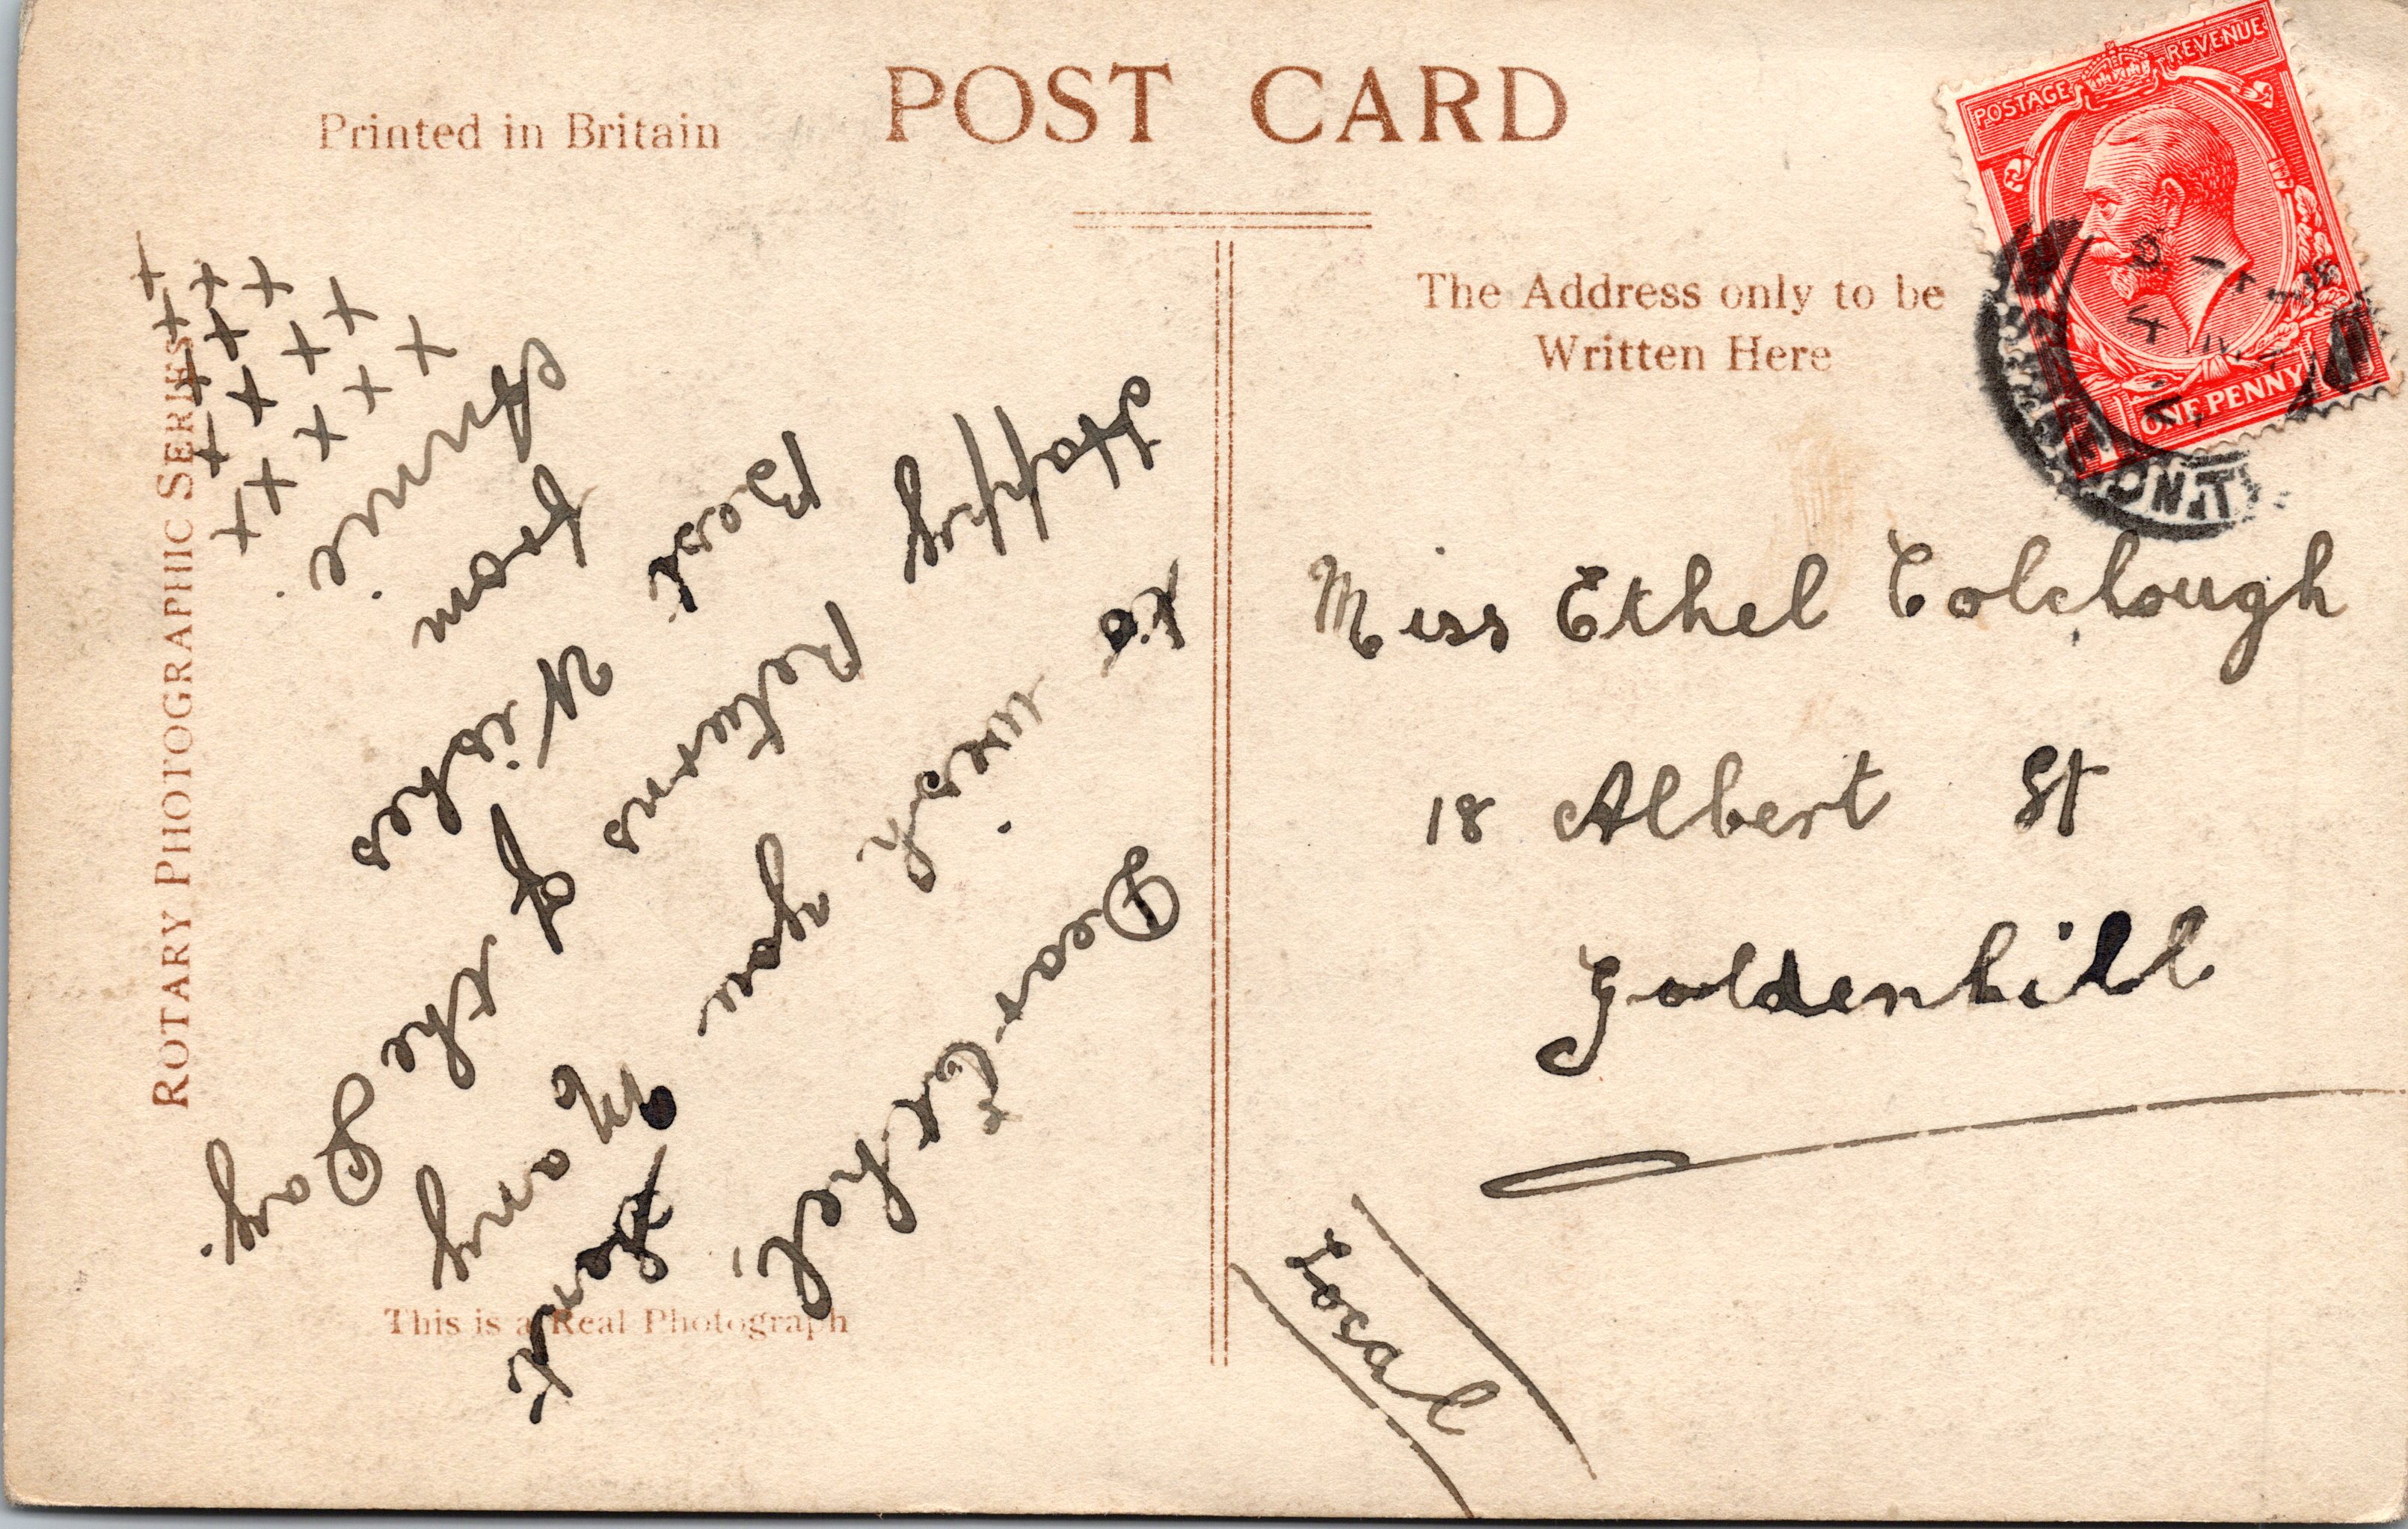 POST CARD
Printed in Britain
The Address only to be
Written Here
POSTAGE REVENUE
ONE PENNY
ROTARY PHOTOGRAPHIC SERIES
This is a Real Photograph
Dear Ethel,
Just
to wish you Many
Happy Returns of the Day.
Best Wishes
from
Annie.
+ + + + + + + + + + + + + + + + + +
Miss Ethel Colclough
18 Albert St
Goldenhill
Local